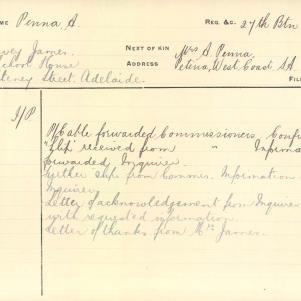 ME Penna, A. REG. &C. 27th Btn
vey James.
School House
teney Street. Adelaide.
NEXT OF KIN Mrs A. Penna.
ADDRESS Petina, West Coast S.A.
FIL
Cable forwarded Commissioners. Conf
"Slip" received from " Informa
forwarded Inquirer
further Slip from Commrs. Information
Inquirer
Letter of acknowledgement from Inquirer
with requested information.
Letter of thanks from Mrs James.